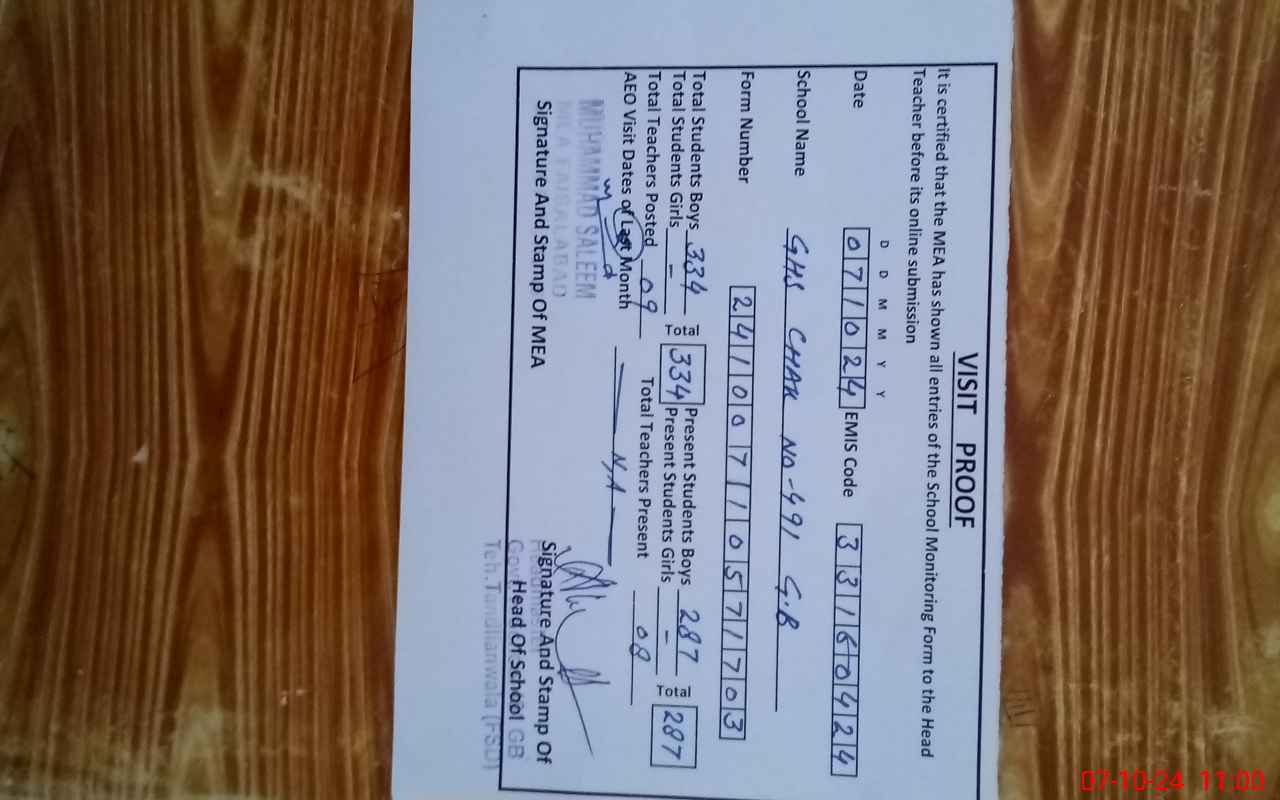 VISIT PROOF
It is certified that the MEA has shown all entries of the School Monitoring Form to the Head
Teacher before its online submission
D D M M Y Y
Date 071024 EMIS Code 33160424
School Name GHS CHAK NO-491 G.B
Form Number 24100710571703
Total Students Boys 334 Total 334 Present Students Boys 287 Total 287
Total Students Girls - Present Students Girls -
Total Teachers Posted 09 Total Teachers Present 08
AEO Visit Dates of Last Month N,A
MUHAMMAD SALEEM
MEA FAISALABAD
Signature And Stamp Of MEA
Signature And Stamp Of
Head Of School
Headmaster
GB
Teh.Tandlianwala (FSD)
07-10-24 11:00